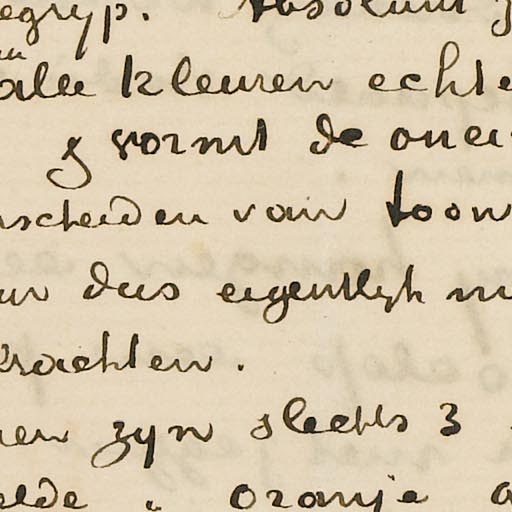 egryp. Absoluut z
alle kleuren echte
g vormt de onei
nscheiden van toon
ur dus eigentlyk ni
krachten.
ren zyn slechts 3
elde " oranje a